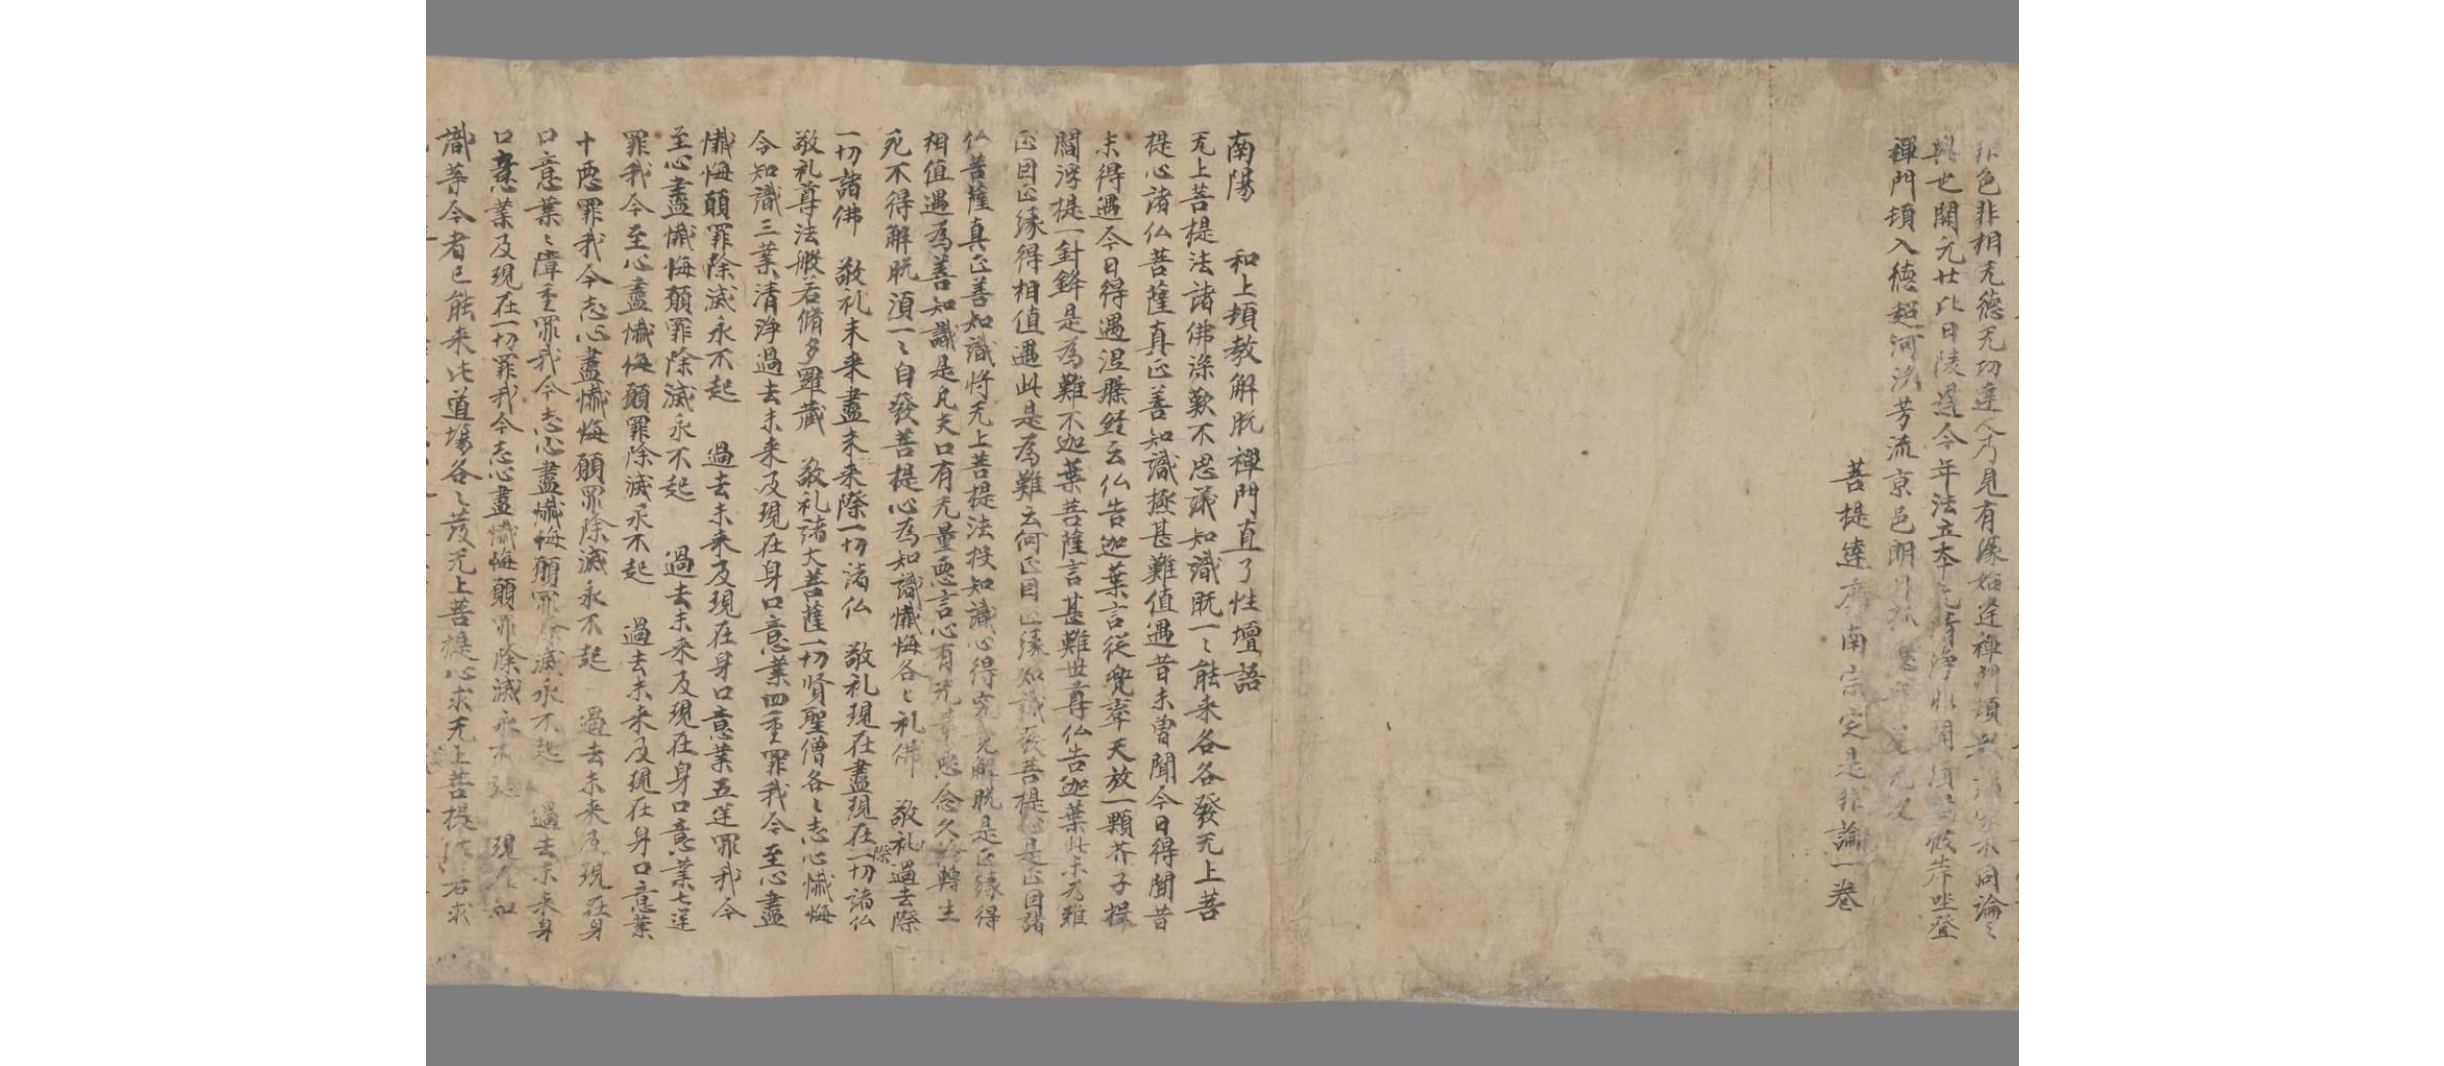 非色非相无德无功達人乃見有緣始逢禪門頓教諸家不同論之
興也開元廿比日陵遲今年法立本元清淨非關積學彼岸坐登
禪門頓入德超河洛芳流京邑朗月孤
菩提達摩南宗定是非論一卷
南陽 和上頓教解脫禪門直了性壇語
无上菩提法諸佛深歎不思議知識既一〻能来各各發无上菩
提心諸仏菩薩真正善知識極甚難值遇昔未曾聞今日得聞昔
未得遇今日得遇涅槃經云仏告迦葉言從兜率天放一顆芥子投
閻浮提一針鋒是為難不迦葉菩薩言甚難世尊仏告迦葉此未為難
正因正緣得相值遇此是為難云何正因正緣知識發菩提心是正因諸
仏菩薩真正善知識將无上菩提法投知識心得究竟解脫是正緣得
相值遇為善知識是凡夫口有无量惡言心有无量惡念久轉生
死不得解脫須一〻自發菩提心為知識懺悔各〻礼佛 敬礼過去際
一切諸佛 敬礼未来盡未来際一切諸仏 敬礼現在盡現在際一切諸仏
敬礼尊法般若脩多羅藏 敬礼諸大菩薩一切賢聖僧各〻志心懺悔
令知識三業清淨過去未来及現在身口意業四重罪我今至心盡
懺悔願罪除滅永不起 過去未来及現在身口意業五逆罪我今
至心盡懺悔願罪除滅永不起 過去未来及現在身口意業七逆
罪我今至心盡懺悔願罪除滅永不起 過去未来及現在身口意業
十惡罪我今志心盡懺悔願罪除滅永不起 過去未来及現在身
口意業〻障重罪我今志心盡懺悔願罪除滅永不起 過去未来身
口意業及現在一切罪我今志心盡懺悔願罪除滅永不起 現在知
識等今者已能来此道場各〻發无上菩提心求无上菩提法若求